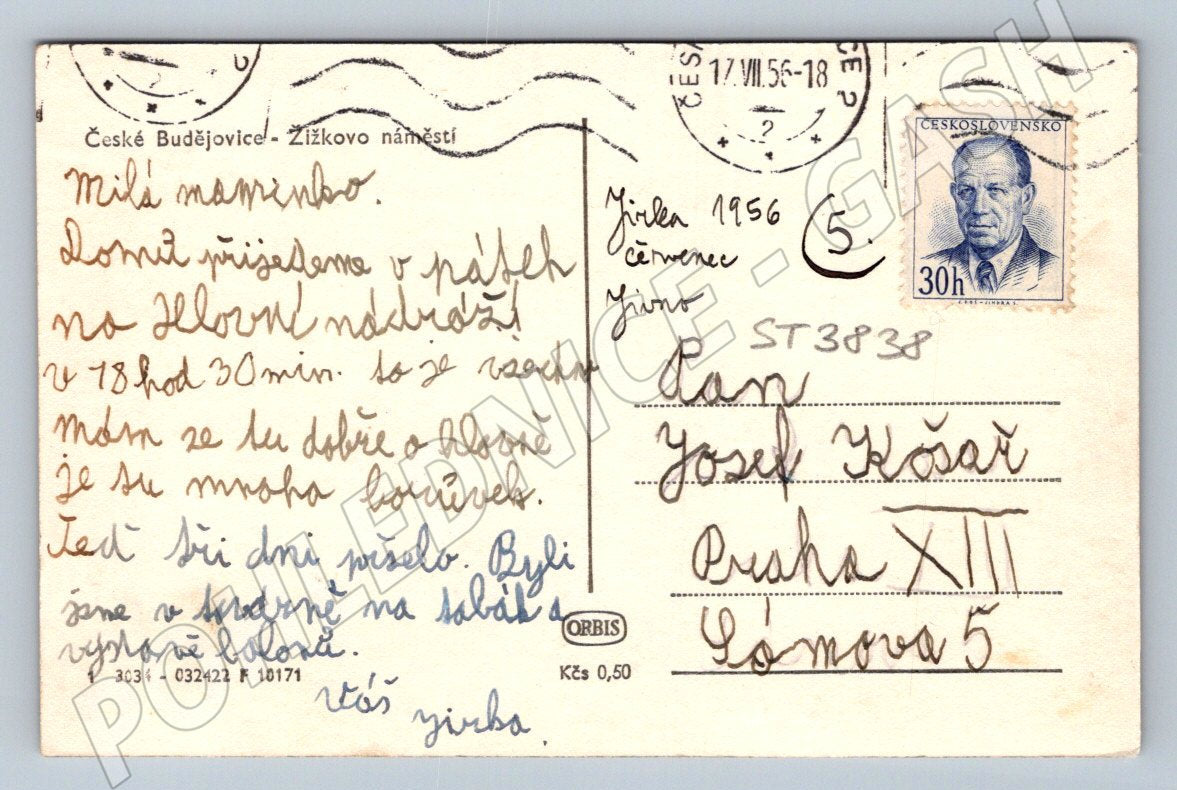 ČESK
CE 2
17.VII.56-18
2
České Budějovice - Žižkovo náměstí
Milá maminko.
Domů přijedeme v pátek
na Hlovní nádráží
v 18 hod 30 min. to je všechno
mám se tu dobře a hlavně
je tu mnoho borůvek.
Teď tři dni pršelo. Byli
jsme v továrně na tabák a
výstavě balonů.
Váš Jirka.
1 3034 - 032422 F 10171
ORBIS
Kčs 0,50
Jirka 1956
červenec
Jivno
5.
ČESKOSLOVENSKO
30h
ST3838
Pan
Josef Košař
Praha XIII
Sámova 5
POHLEDNICE - GASH